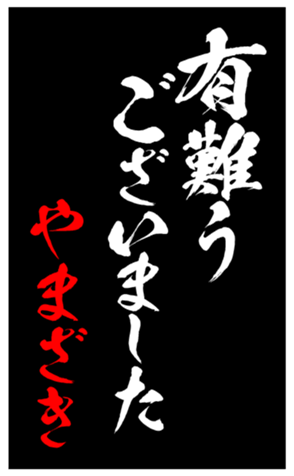 有難う
ございました
やまざき